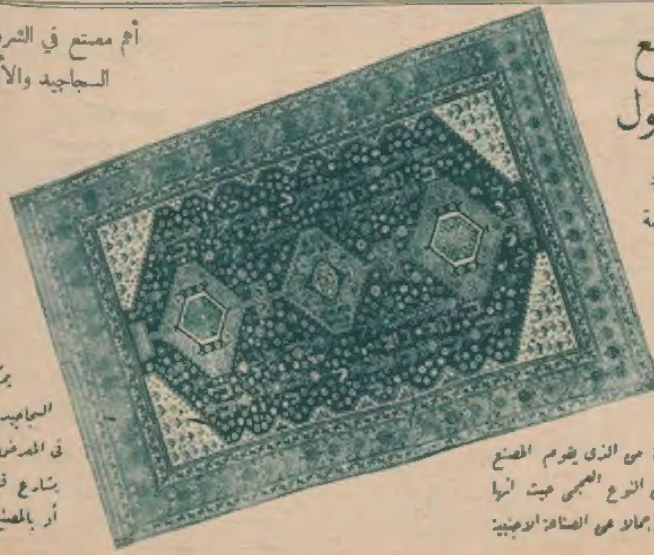 أهم مصنع في الشرق
السجاجيد والأ
ع
ول
ة
السجاجيد
في المعرض
بشارع ف
أو بالمصنع
من الذي يقوم المصنع
النوع العجمي حيث انها
جمالا عن الصناعة الاجنبية